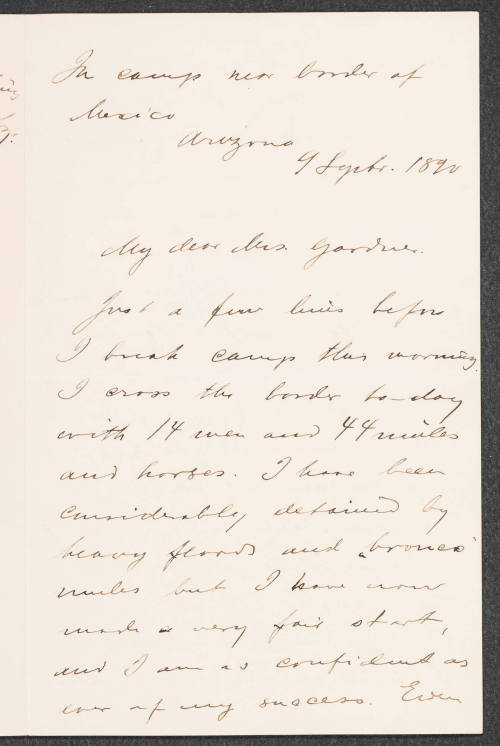 In camp near border of
Mexico
Arizona
9 Septr. 1890
My dear Mrs. Gardner.
Just a few lines before
I break camp this morning.
I cross the border to-day
with 14 men and 44 mules
and horses. I have been
considerably detained by
heavy floods and „bronco"
mules but I have now
made a very fair start,
and I am as confident as
ever of my success. Even